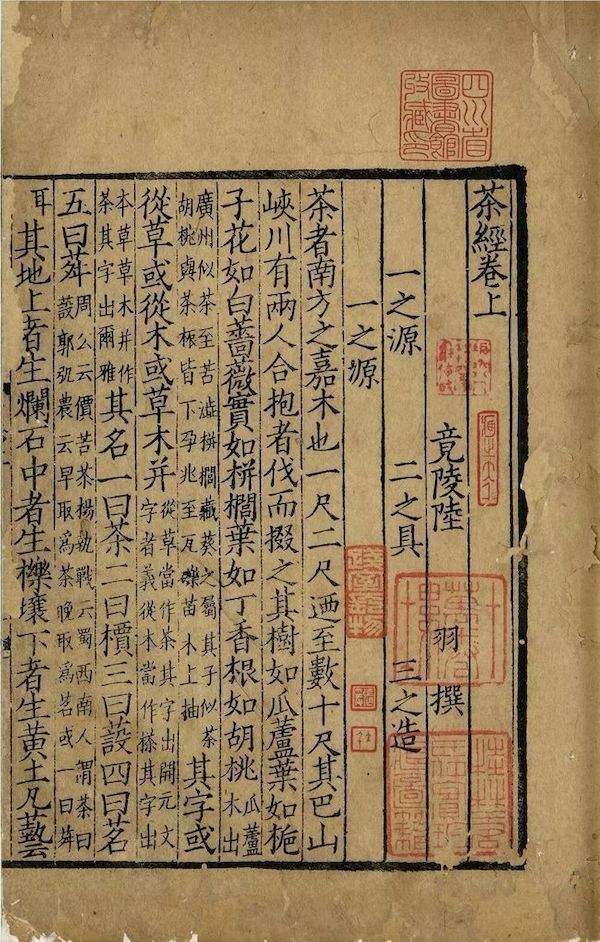 四川省
圖書館
收藏印
茶經卷上
竟陵陸 羽 撰
一之源 二之具 三之造
一之源
茶者南方之嘉木也一尺二尺迺至數十尺其巴山
峽川有兩人合抱者伐而掇之其樹如瓜蘆葉如梔
子花如白薔薇實如栟櫚葉如丁香根如胡桃瓜蘆木出
廣州似茶至苦澁栟櫚藏葵之屬其子似茶胡桃與茶根皆下孕兆至瓦礫苗木上抽其字或
從草或從木或草木并從草當作茶其字出開元文字者義從木當作搽其字出
本草草木并作茶其字出爾雅其名一曰茶二曰檟三曰設四曰茗
五曰荈周公云價苦茶楊執戟云蜀西南人謂茶曰蔎郭弘農云早取為茶晚取為茗或一曰荈
耳其地上者生爛石中者生櫟壤下者生黃土凡藝